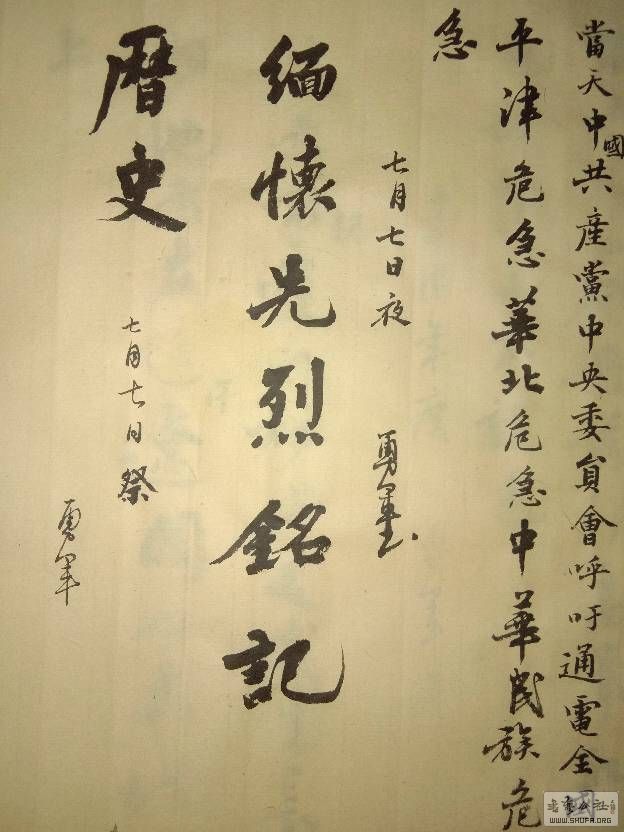 當天中國共產黨中央委員會呼吁通電全國
平津危急華北危急中華民族危
急
七月七日夜 勇軍
缅懷先烈銘記
曆史
七月七日祭
勇軍
WWW.SHUFA.ORG